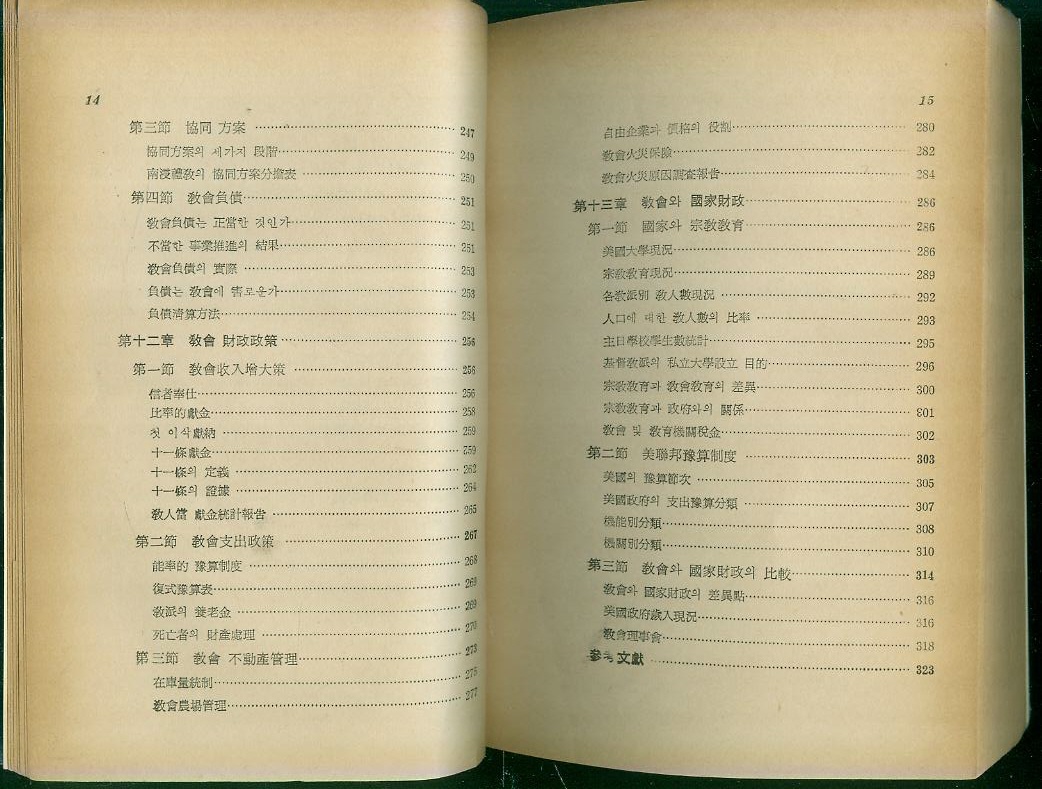 14
第三節 協同 方案 247
協同方案의 세가지 段階 249
南浸禮敎의 協同方案分擔表 250
第四節 敎會負債 251
敎會負債는 正當한 것인가 251
不當한 事業推進의 結果 251
敎會負債의 實際 253
負債는 敎會에 害로운가 253
負債淸算方法 254
第十二章 敎會 財政政策 256
第一節 敎會收入增大策 256
信者奉仕 256
比率的獻金 258
첫 이삭獻納 259
十一條獻金 259
十一條의 定義 262
十一條의 證據 264
敎人當 獻金統計報告 265
第二節 敎會支出政策 267
能率的 豫算制度 268
復式豫算表 269
敎派의 養老金 269
死亡者의 財產處理 270
第三節 敎會 不動產管理 273
在庫量統制 275
敎會農場管理 277
15
自由企業과 價格의 役割 280
敎會火災保險 282
敎會火災原因調査報告 284
第十三章 敎會와 國家財政 286
第一節 國家와 宗敎敎育 286
美國大學現況 286
宗敎敎育現況 289
各敎派別 敎人數現況 292
人口에 대한 敎人數의 比率 293
主日學校學生數統計 295
基督敎派의 私立大學設立 目的 296
宗敎敎育과 敎會敎育의 差異 300
宗敎敎育과 政府와의 關係 301
敎會 및 敎育機關稅金 302
第二節 美聯邦豫算制度 303
美國의 豫算節次 305
美國政府의 支出豫算分類 307
機能別分類 308
機關別分類 310
第三節 敎會와 國家財政의 比較 314
敎會와 國家財政의 差異點 316
美國政府歲入現況 316
敎會理事會 318
參考文獻 323